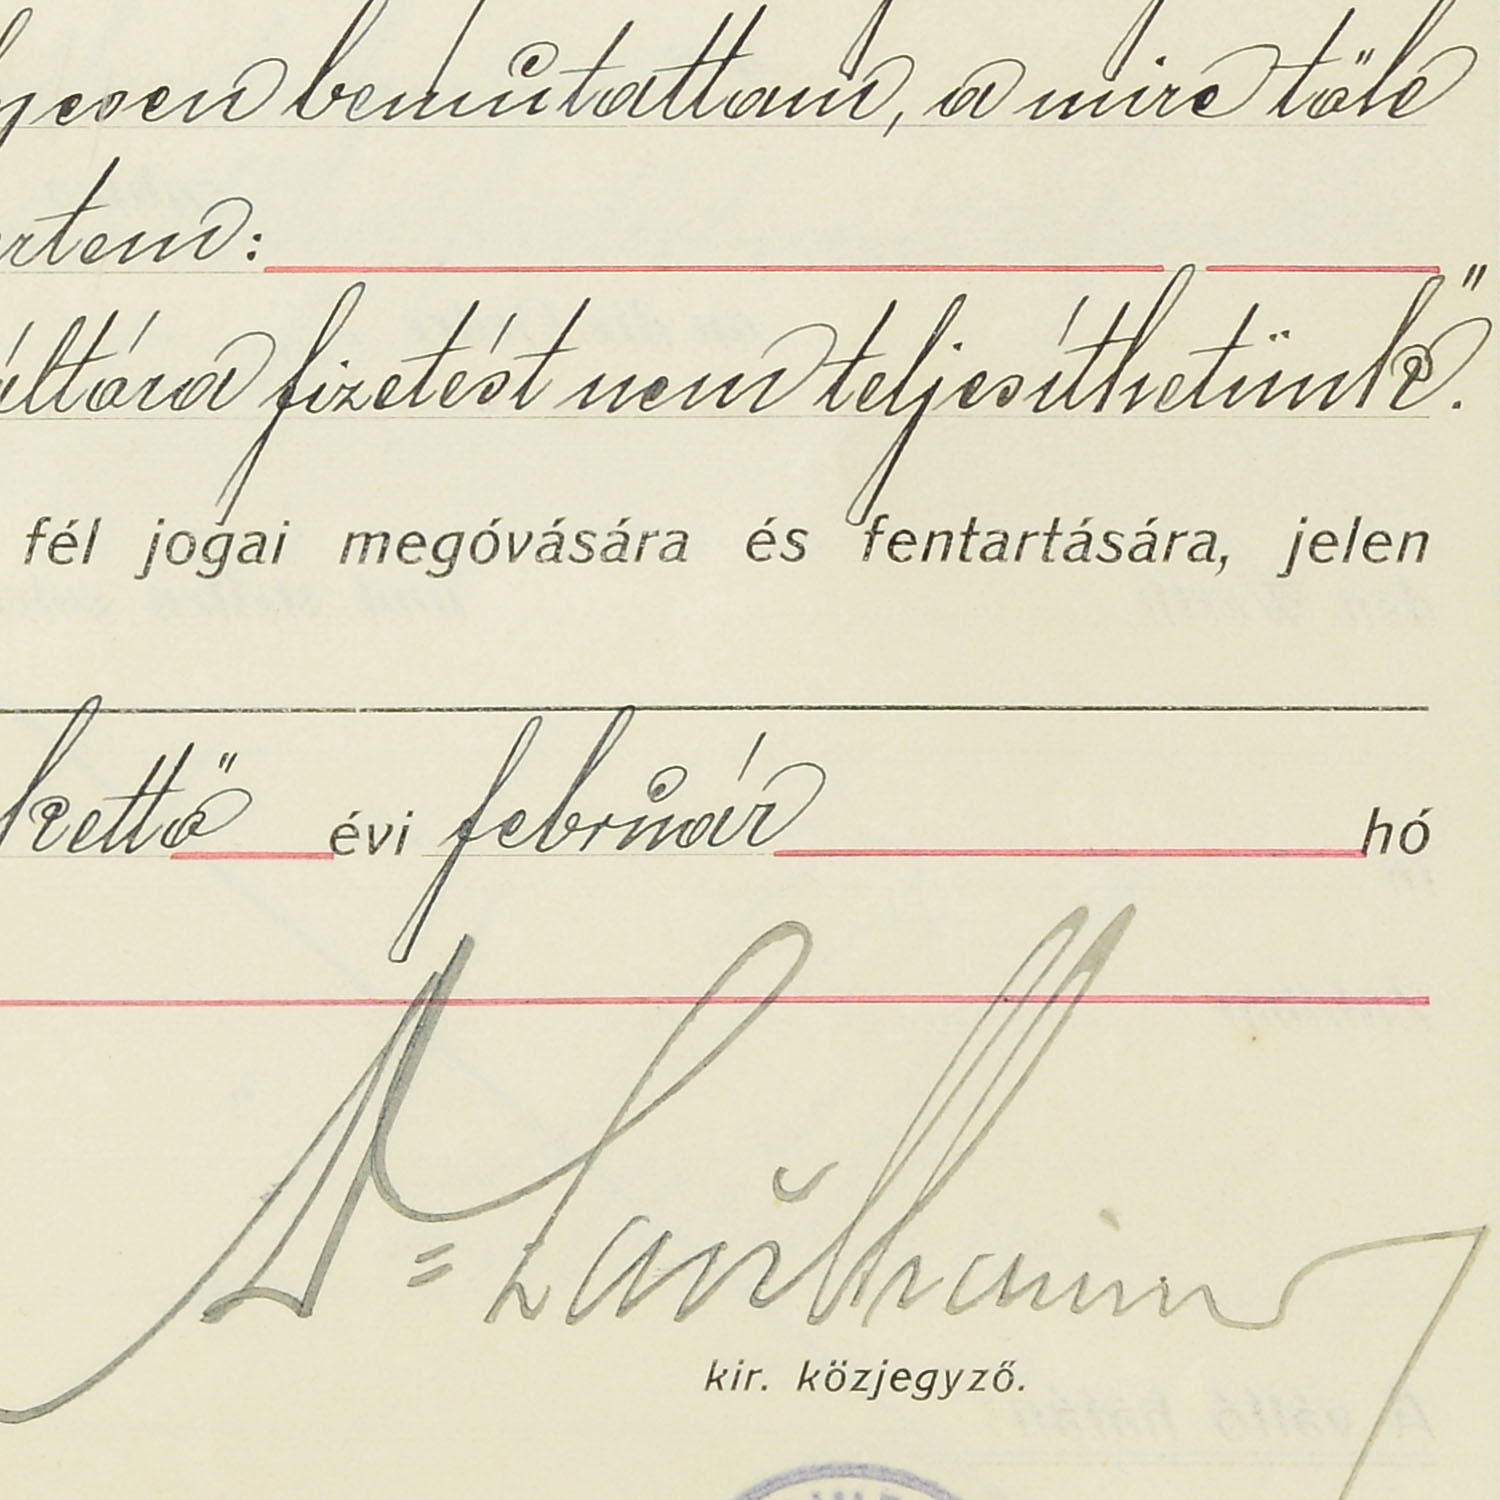 bemutattam, a mire tőle
fizetést nem teljesíthetünk."
fél jogai megóvására és fentartására, jelen
kettő évi február hó
kir. közjegyző.